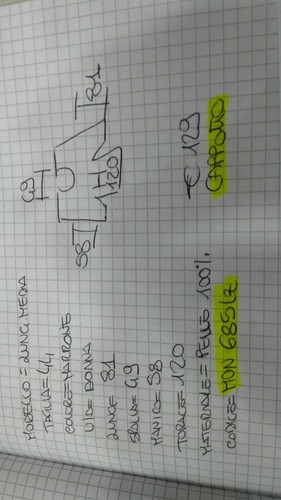 MODELLO = LUNG. MEDIA
TAGLIA = 44
COLORE = MARRONE
DONNA
81
49
58
TORACE = 120
MATERIALE = PELLE 100%
CODICE = MON 685 LZ
49
58
120
81
€ 129
CAPPOTTO